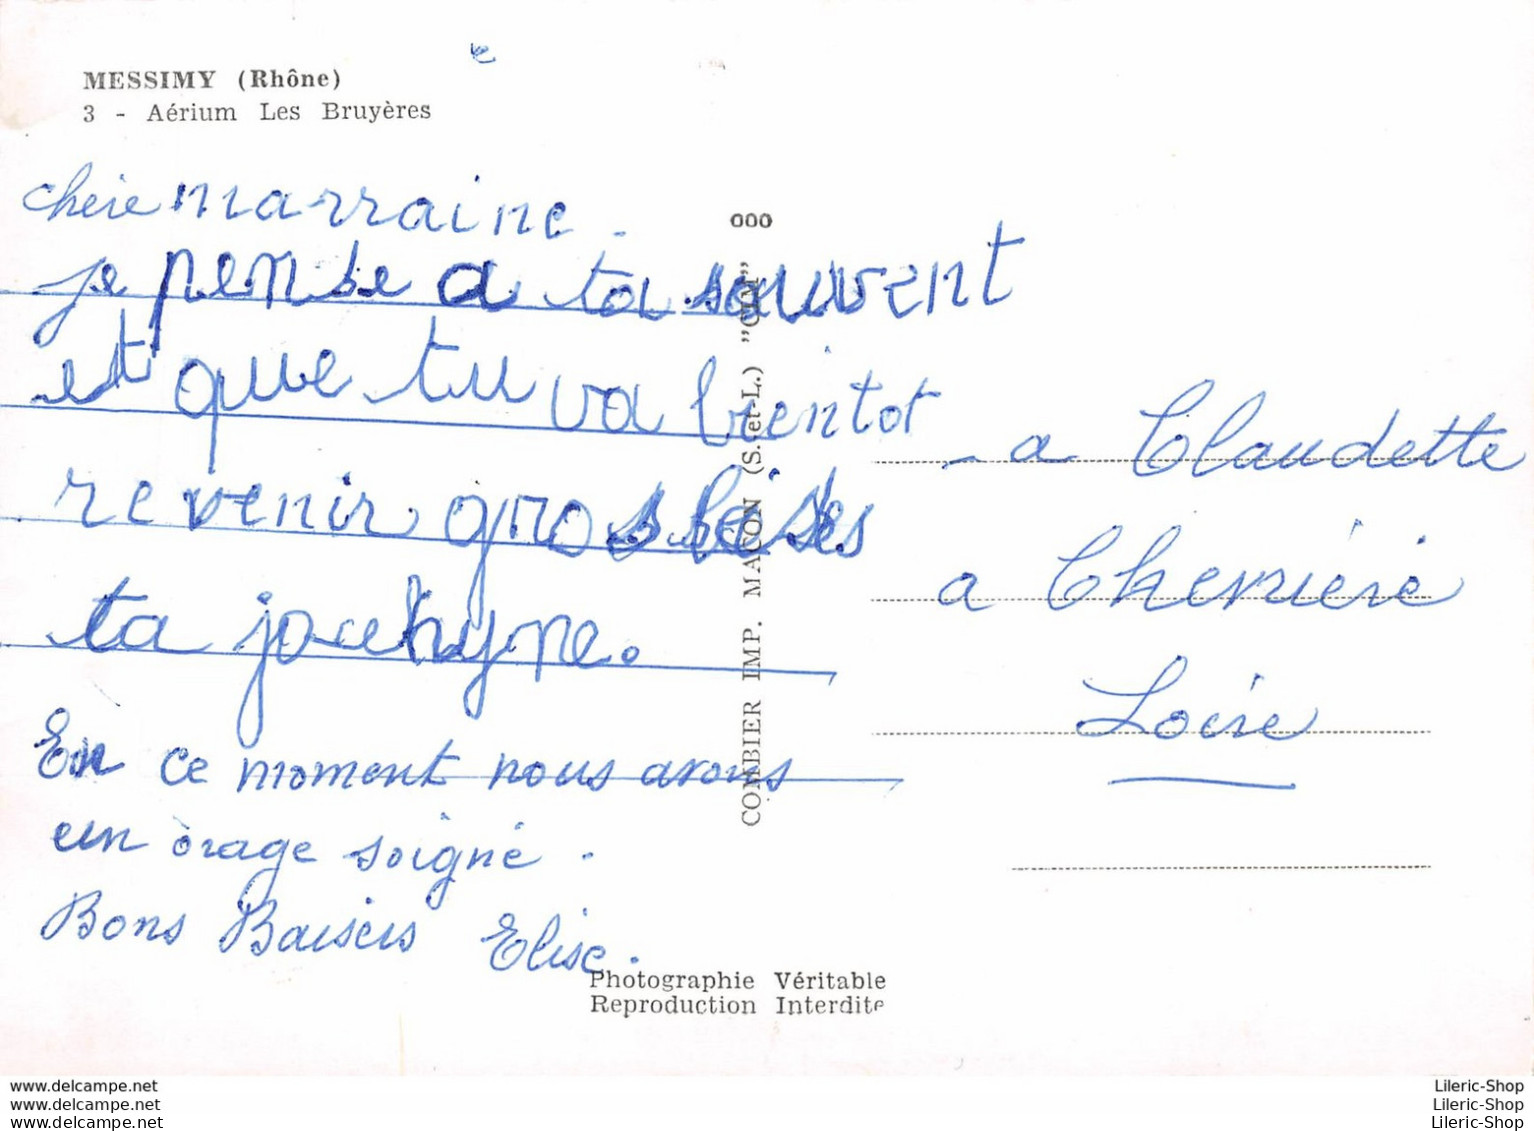 MESSIMY (Rhône)
3 - Aérium Les Bruyères
chère marraine.
je pense a ta souvent
et que tu va bientot
revenir gros beises
ta jocelyne.
En ce moment nous avons
un orage soigné.
Bons Baisers Elise.
ooo
COMBIER IMP. MACON (S.-et-L.) "CIM"
- a Claudette
a Cherrière
Loire
Photographie Véritable
Reproduction Interdite
delcampe.net
delcampe.net
delcampe.net
Lileric-Shop
Lileric-Shop
Lileric-Shop